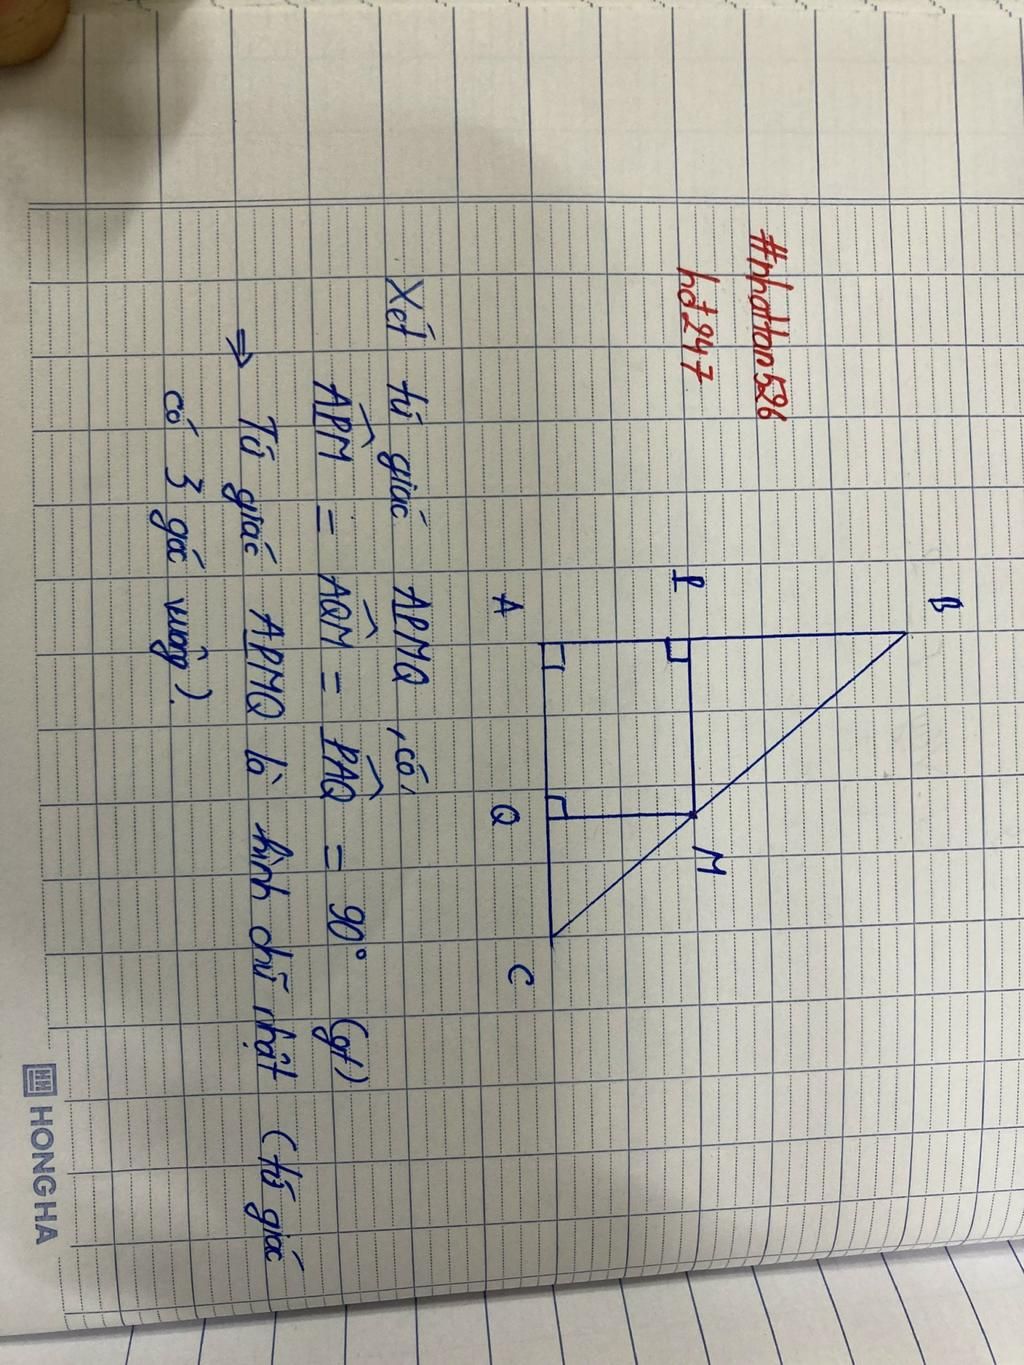 #nhattan526
hđ247
B
P
M
A
Q
C
Xét tứ giác APMQ, có:
APM = AQM = PAQ = 90° (gt)
⇒ Tứ giác APMQ là hình chữ nhật (tứ giác
có 3 góc vuông).
HONG HA